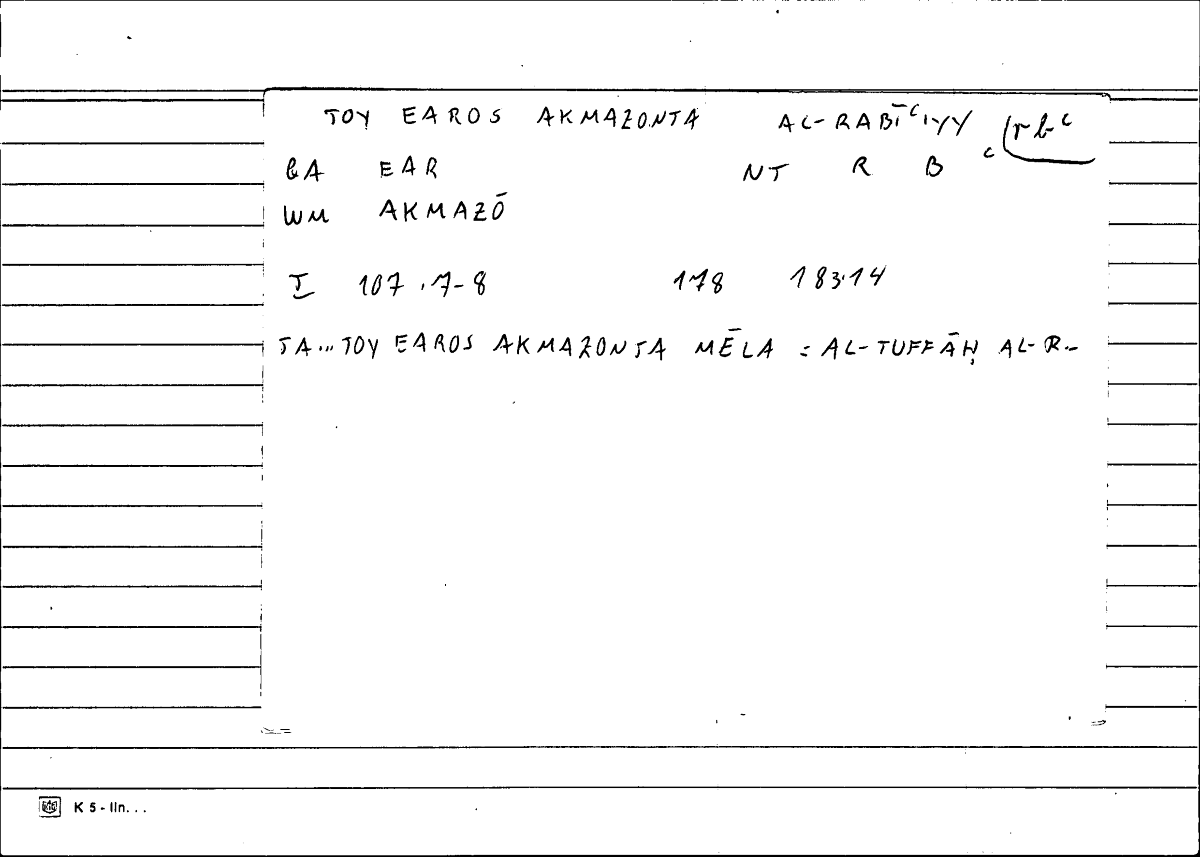 TOY EAROS AKMAZONTA AL-RABĪʿIYY rbʿ
GA EAR NT R B ʿ
WM AKMAZŌ
I 107.7-8 178 183.14
TA...TOY EAROS AKMAZONTA MĒLA = AL-TUFFĀḤ AL-R--
K 5 - lin. . .